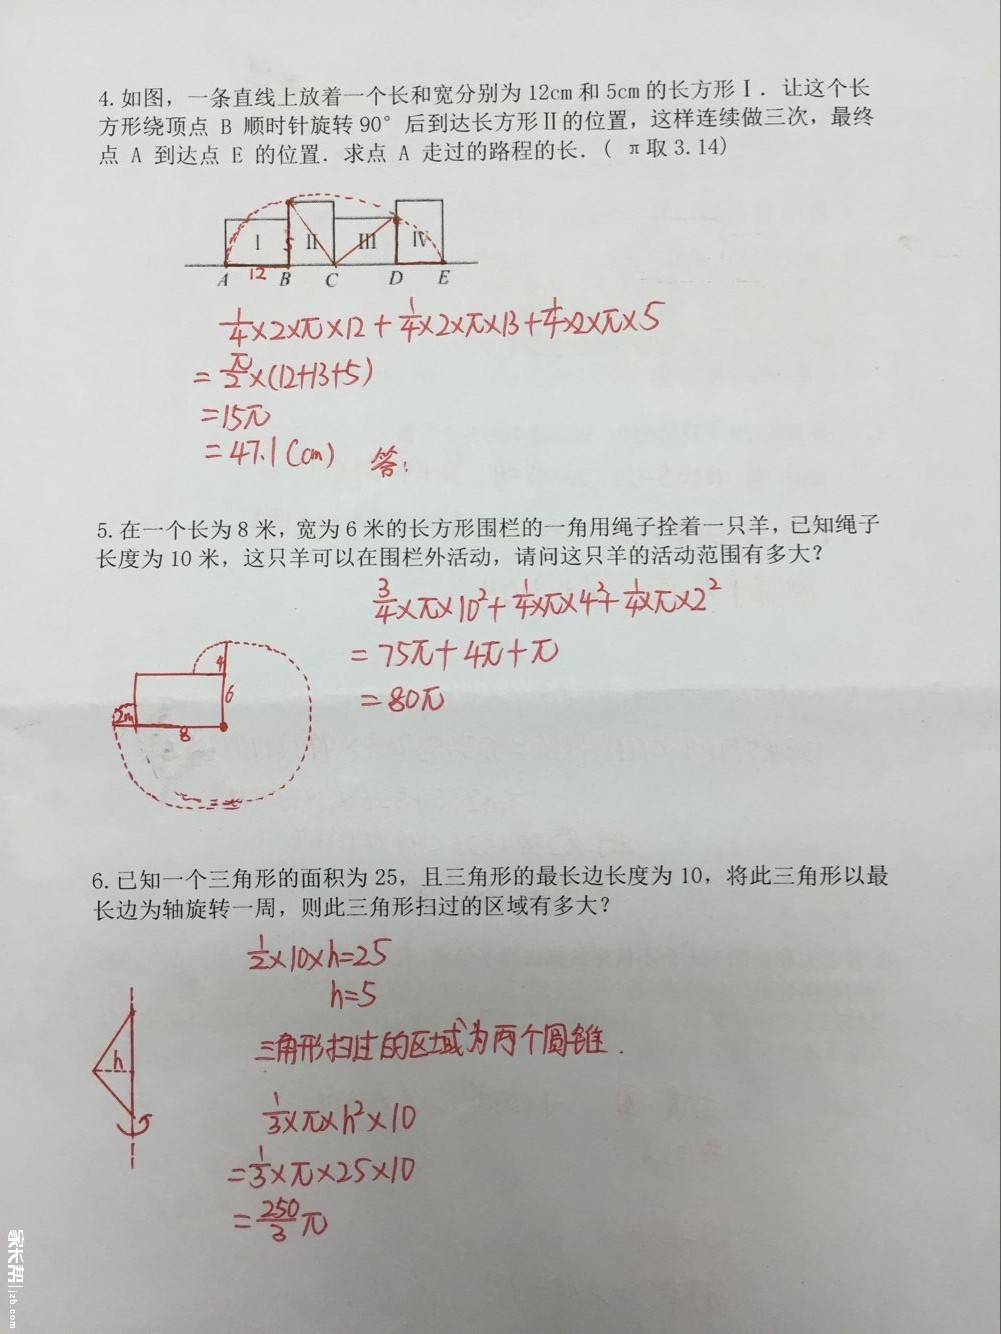 4.如图，一条直线上放着一个长和宽分别为12cm和5cm的长方形Ⅰ．让这个长
方形绕顶点 B 顺时针旋转90°后到达长方形Ⅱ的位置，这样连续做三次，最终
点 A 到达点 E 的位置．求点 A 走过的路程的长．( π取3.14)
Ⅰ 5 Ⅱ Ⅲ Ⅳ
A 12 B C D E
1/4×2×π×12+1/4×2×π×13+1/4×2×π×5
=π/2×(12+13+5)
=15π
=47.1(cm) 答：
5.在一个长为8米，宽为6米的长方形围栏的一角用绳子拴着一只羊，已知绳子
长度为10米，这只羊可以在围栏外活动，请问这只羊的活动范围有多大？
3/4×π×10²+1/4×π×4²+1/4×π×2²
=75π+4π+π
=80π
4
6
2m
8
6.已知一个三角形的面积为25，且三角形的最长边长度为10，将此三角形以最
长边为轴旋转一周，则此三角形扫过的区域有多大？
1/2×10×h=25
h=5
三角形扫过的区域为两个圆锥．
h
1/3×π×h²×10
=1/3×π×25×10
=250/3π
家长帮 jzb.com